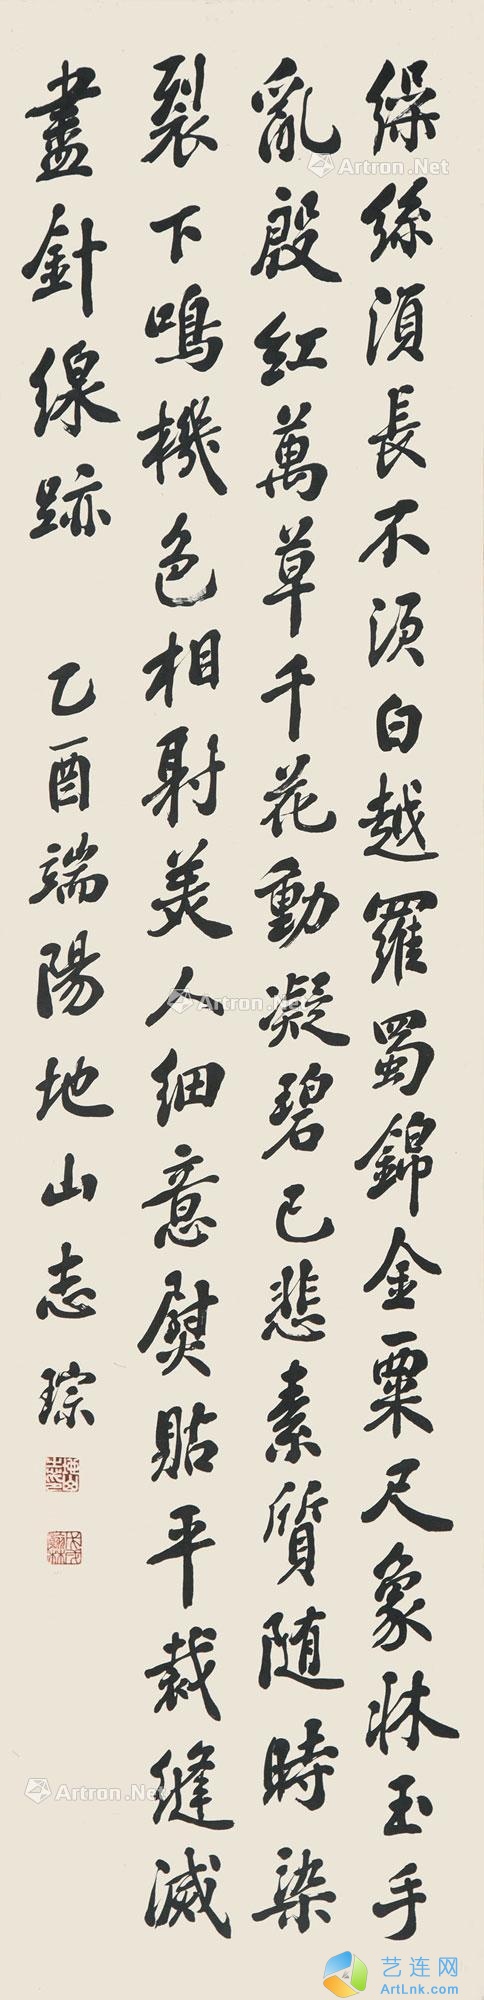 繰絲湏長不須白越羅蜀錦金粟尺象牀玉手
亂殷紅萬草千花動凝碧已悲素質随時染
裂下鳴機色相射美人細意熨貼平裁縫滅
盡針線跡
乙酉端陽地山志琮
Artron.Net
Artron.Net
Artron.Net
Artron.Net
Artron.Net
艺连网
ArtLnk.com